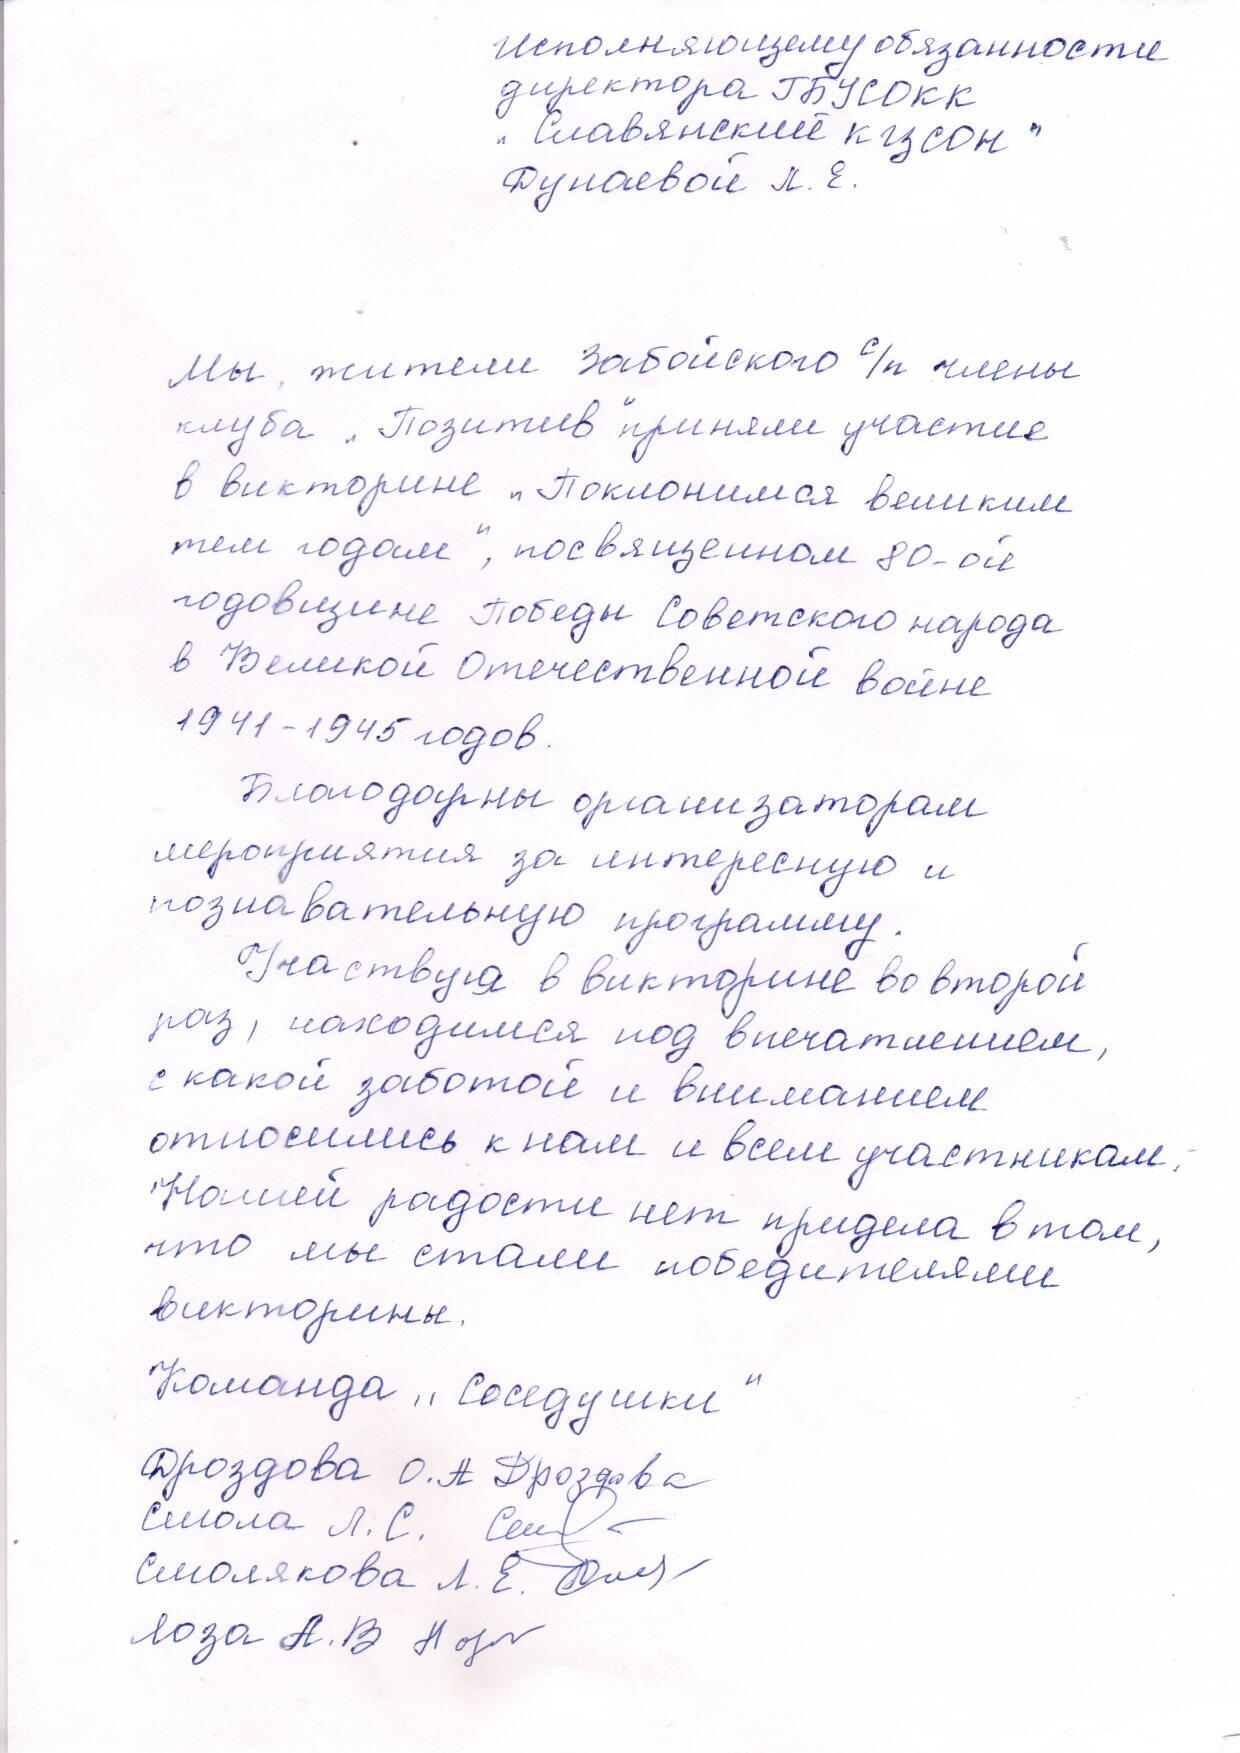 Исполняющему обязанности
директора ГБУСОКК
„Славянский КЦСОН"
Дунаевой Л. Е.
Мы, жители Забойского с/п члены
клуба „Позитив" приняли участие
в викторине „Поклонимся великим
тем годам", посвященном 80-ой
годовщине Победы Советского народа
в Великой Отечественной войне
1941-1945 годов.
Благодарны организаторам
мероприятия за интересную и
познавательную программу.
Участвуя в викторине во второй
раз, находимся под впечатлением,
с какой заботой и вниманием
относились к нам и всем участникам.
Нашей радости нет придела в том,
что мы стали победителями
викторины.
Команда „Соседушки"
Дроздова О.А Дроздова
Смола Л.С.
Смолякова Л.Е.
Лоза А.В